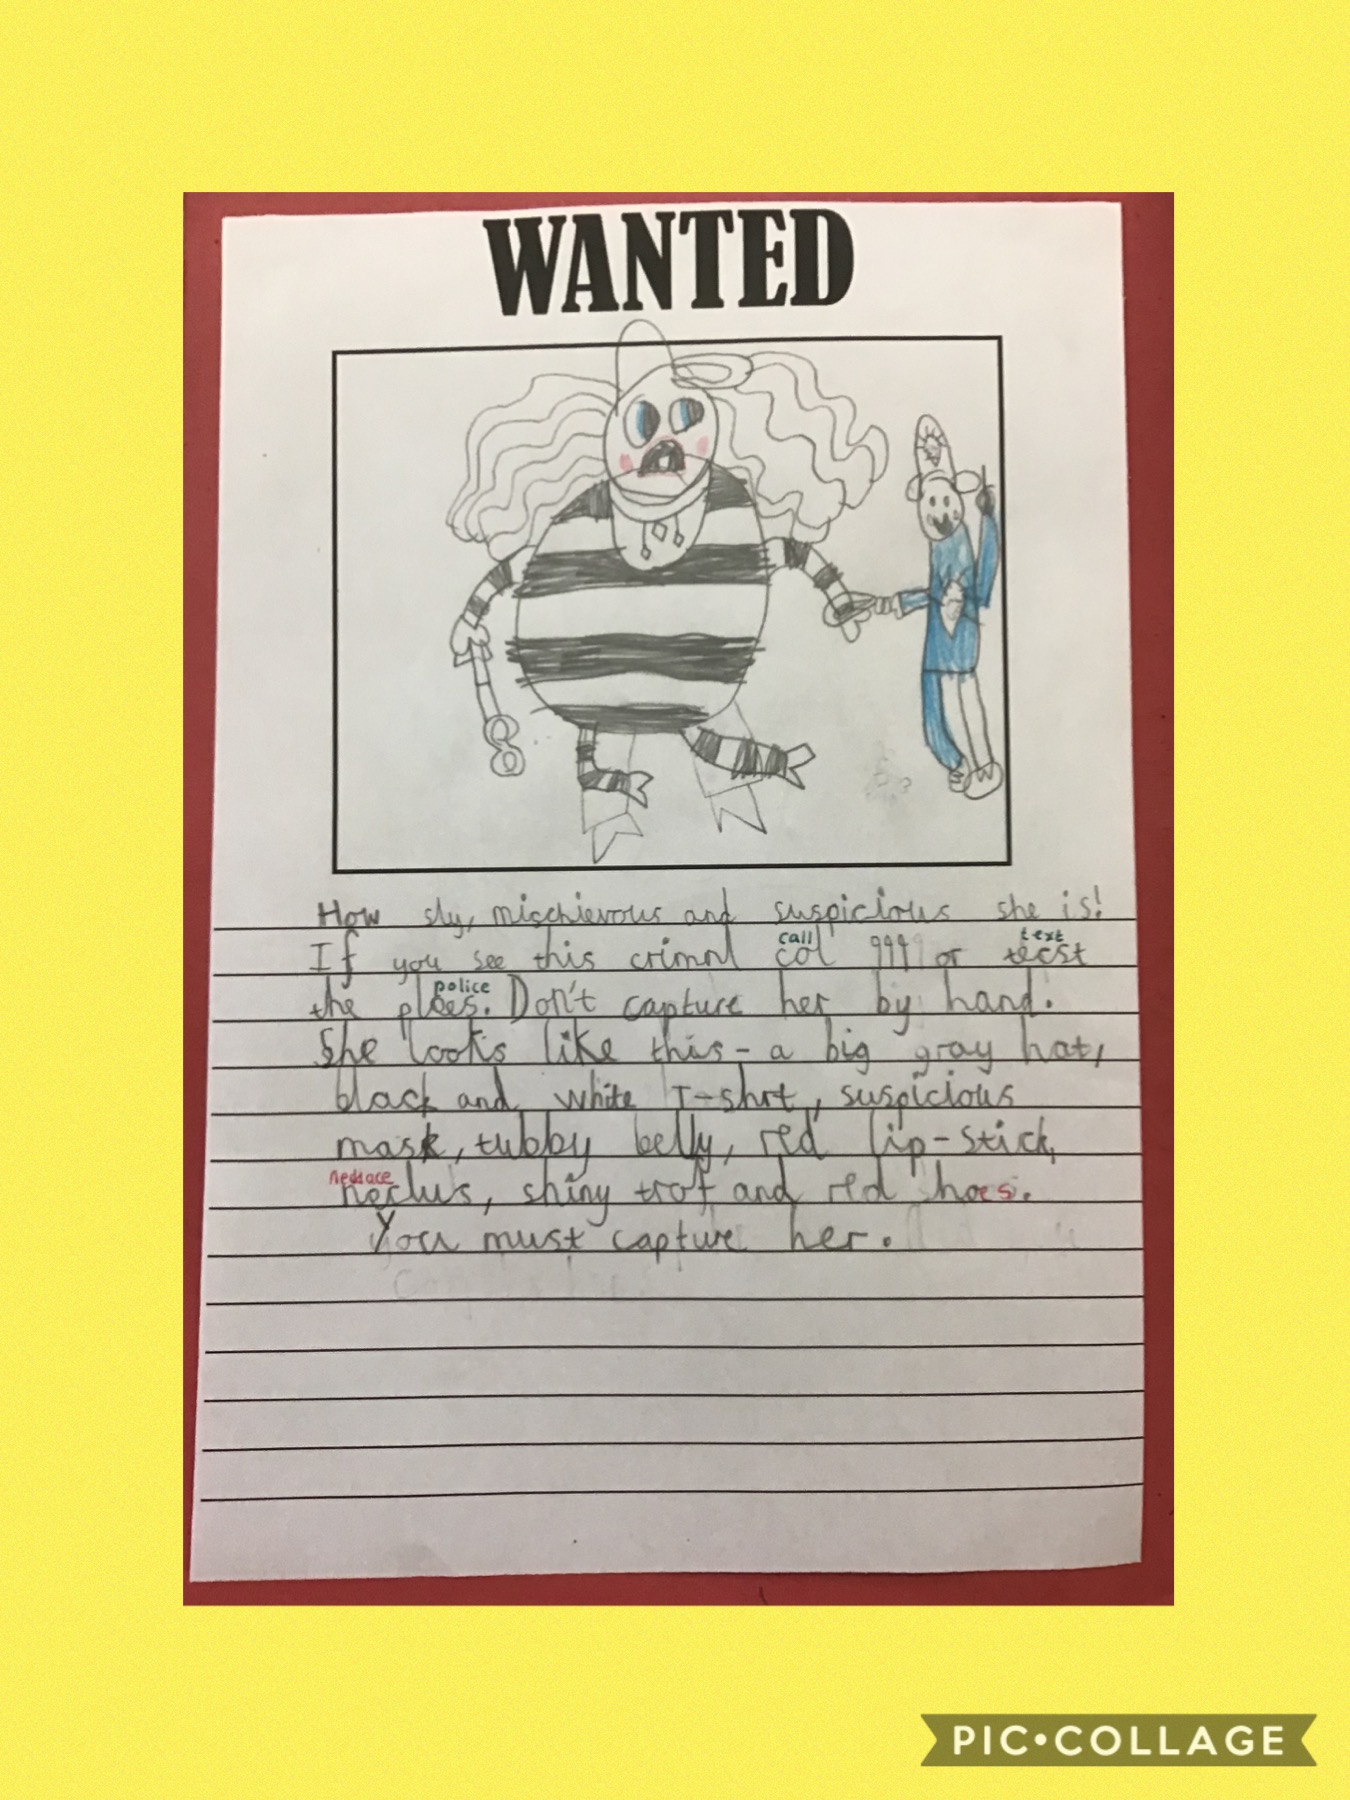 WANTED
How sly, mischievous and suspicious she is!
call text
If you see this crimnl col 999 or tecst
police
the plees. Don't capture her by hand.
She looks like this - a big gray hat,
black and white T-shrt, suspicious
mask, tubby belly, red lip-stick,
necklace
neclus, shiny trof and red shoes.
You must capture her.
PIC•COLLAGE